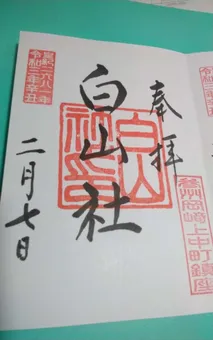 奉拝
參州岡崎上中町鎮座
白山社
白山
社印
皇紀二六八一年
令和三年辛丑
二月七日